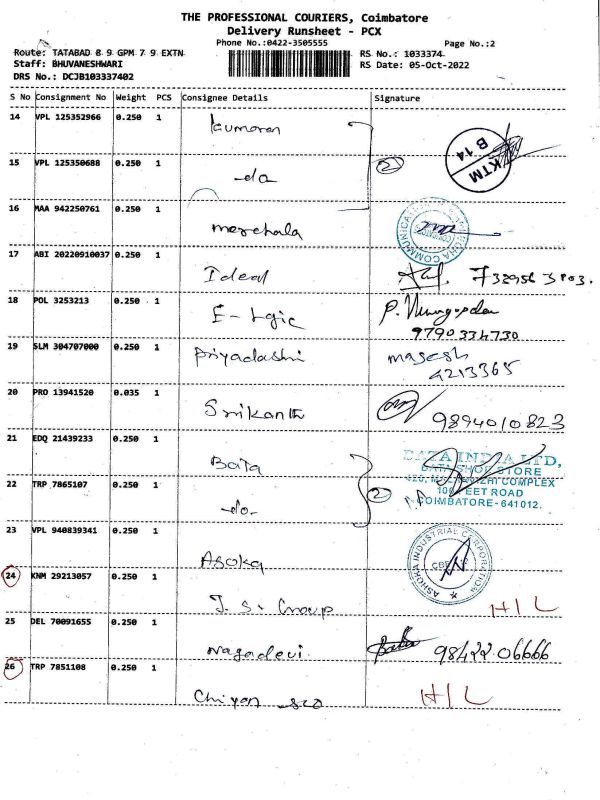 THE PROFESSIONAL COURIERS, Coimbatore
Delivery Runsheet - PCX
Phone No.:0422-3505555 Page No.:2
Route: TATABAD 8 9 GPM 7 9 EXTN RS No.: 1033374
Staff: BHUVANESHWARI RS Date: 05-Oct-2022
DRS No.: DCJB103337402
S No Consignment No Weight PCS Consignee Details Signature
14 VPL 125352966 0.250 1
Kumaran
KTM
B 14
15 VPL 125350688 0.250 1
-do 2
16 MAA 942250761 0.250 1
17 ABI 20220910037 0.250 1
Ideal
18 POL 3253213 0.250 1
E-Lgic
9790334730
19 SLM 304707000 0.250 1
Priyadashni magesh
4213365
20 PRO 13941520 0.035 1
Srikanth 9894010823
21 EDQ 21439233 0.250 1
Bata
BATA INDIA LTD,
BATA SHOE STORE
22 TRP 7865107 0.250 1
COMPLEX
-do- 2
100 FEET ROAD
COIMBATORE-641012.
23 VPL 940839341 0.250 1
ASHOKA INDUSTRIAL CORPORATION
CBE
Asoka
24 KNM 29213057 0.250 1
J. S. Group H/L
25 DEL 70091655 0.250 1
Nagadevi 98422 06666
26 TRP 7851108 0.250 1
H/L